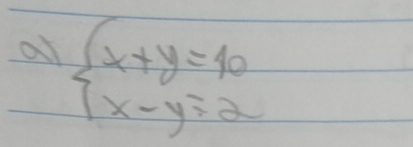 a) { x + y = 10
x - y = 2